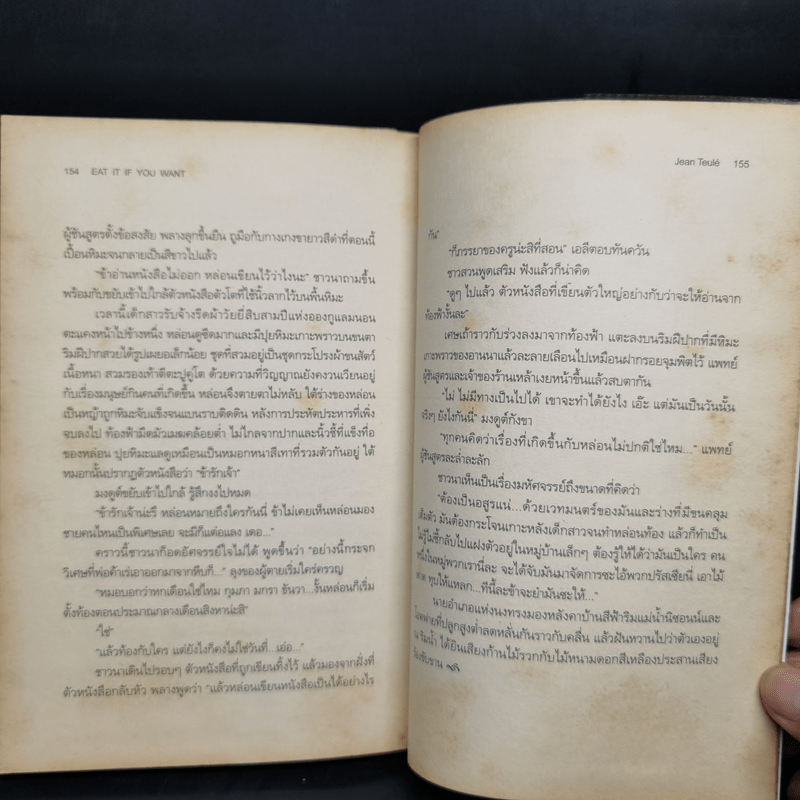 154 EAT IT IF YOU WANT
ผู้ชันสูตรตั้งข้อสงสัย พลางลุกขึ้นยืน ถูมือกับกางเกงขายาวสีดำที่ตอนนี้
เปื้อนหิมะจนกลายเป็นสีขาวไปแล้ว
"ข้าอ่านหนังสือไม่ออก หล่อนเขียนไว้ว่าไงนะ" ชาวนาถามขึ้น
พร้อมกับขยับเข้าไปใกล้ตัวหนังสือตัวโตที่ใช้นิ้วลากไว้บนพื้นหิมะ
เวลานี้เด็กสาวรับจ้างรีดผ้าวัยยี่สิบสามปีแห่งอองกูแลมนอน
ตะแคงหน้าไปข้างหนึ่ง หล่อนดูซีดมากและมีปุยหิมะเกาะพราวบนขนตา
ริมฝีปากสวยได้รูปเผยอเล็กน้อย ชุดที่สวมอยู่เป็นชุดกระโปรงผ้าขนสัตว์
เนื้อหนา สวมรองเท้าติดตะปูคู่โต ด้วยความที่วิญญาณยังคงวนเวียนอยู่
กับเรื่องมนุษย์กินคนที่เกิดขึ้น หล่อนจึงตายตาไม่หลับ ใต้ร่างของหล่อน
เป็นหญ้าถูกหิมะจับแข็งจนแบนราบติดดิน หลังการประหัตประหารที่เพิ่ง
จบลงไป ท้องฟ้ามืดมัวเมฆคล้อยต่ำ ไม่ไกลจากปากและนิ้วชี้ที่แข็งทื่อ
ของหล่อน ปุยหิมะแลดูเหมือนเป็นหมอกหนาสีเทาที่รวมตัวกันอยู่ ใต้
หมอกนั้นปรากฏตัวหนังสือว่า "ข้ารักเจ้า"
มงดูต์ขยับเข้าไปใกล้ รู้สึกงงไปหมด
"ข้ารักเจ้าน่ะรึ หล่อนหมายถึงใครกันนี่ ข้าไม่เคยเห็นหล่อนมอง
ชายคนไหนเป็นพิเศษเลย จะมีก็แต่อแลง เดอ..."
คราวนี้ชาวนาก็อดอัศจรรย์ใจไม่ได้ พูดขึ้นว่า "อย่างนี้กระจก
วิเศษที่พ่อค้าเร่เอาออกมาจากหีบก็..." ลุงของผู้ตายเริ่มใคร่ครวญ
"หมอบอกว่าหกเดือนใช่ไหม กุมภา มกรา ธันวา...งั้นหล่อนก็เริ่ม
ตั้งท้องตอนประมาณกลางเดือนสิงหาน่ะสิ"
"ใช่"
"แล้วท้องกับใคร แต่ยังไงก็คงไม่ใช่วันที่...เอ่อ..."
ชาวนาเดินไปรอบๆ ตัวหนังสือที่ถูกเขียนทิ้งไว้ แล้วมองจากฝั่งที่
ตัวหนังสือกลับหัว พลางพูดว่า "แล้วหล่อนเขียนหนังสือเป็นได้อย่างไร
Jean Teulé 155
กัน"
"ก็ภรรยาของครูน่ะสิที่สอน" เอลีตอบทันควัน
ชาวสวนพูดเสริม ฟังแล้วก็น่าคิด
"ดูๆ ไปแล้ว ตัวหนังสือที่เขียนตัวใหญ่อย่างกับว่าจะให้อ่านจาก
ท้องฟ้างั้นละ"
เศษเถ้าราวกับร่วงลงมาจากท้องฟ้า แตะลงบนริมฝีปากที่มีหิมะ
เกาะพราวของอานนาแล้วละลายเลือนไปเหมือนฝากรอยจุมพิตไว้ แพทย์
ผู้ชันสูตรและเจ้าของร้านเหล้าเงยหน้าขึ้นแล้วสบตากัน
"ไม่ ไม่มีทางเป็นไปได้ เขาจะทำได้ยังไง เอ๊ะ แต่มันเป็นวันนั้น
จริงๆ ยังไงกันนี่" มงดูต์กังขา
"ทุกคนคิดว่าเรื่องที่เกิดขึ้นกับหล่อนไม่ปกติใช่ไหม..." แพทย์
ผู้ชันสูตรละล่ำละลัก
ชาวนาเห็นเป็นเรื่องมหัศจรรย์ถึงขนาดที่คิดว่า
"ต้องเป็นอสูรแน่...ด้วยเวทมนตร์ของมันและร่างที่มีขนคลุม
เต็มตัว มันต้องกระโจนเกาะหลังเด็กสาวจนทำหล่อนท้อง แล้วก็ทำเป็น
ไม่รู้ไม่ชี้กลับไปแฝงตัวอยู่ในหมู่บ้านเล็กๆ ต้องรู้ให้ได้ว่ามันเป็นใคร คน
หนึ่งในหมู่พวกเรานี่ละ จะได้จับมันมาจัดการซะไอ้พวกปรัสเซียนี่ เอาไม้
ฟาด ทุบให้แหลก...ทีนี้ละข้าจะยำมันซะให้..."
นายอำเภอแห่งนงทรงมองหลังคาบ้านสีฟ้าริมแม่น้ำนิซอนน์และ
ที่ปลูกสูงต่ำลดหลั่นกันราวกับคลื่น แล้วฝันหวานไปว่าตัวเองอยู่
ริมน้ำ ได้ยินเสียงก้านไม้รวกกับไม้หนามดอกสีเหลืองประสานเสียง
ร้องขับขาน